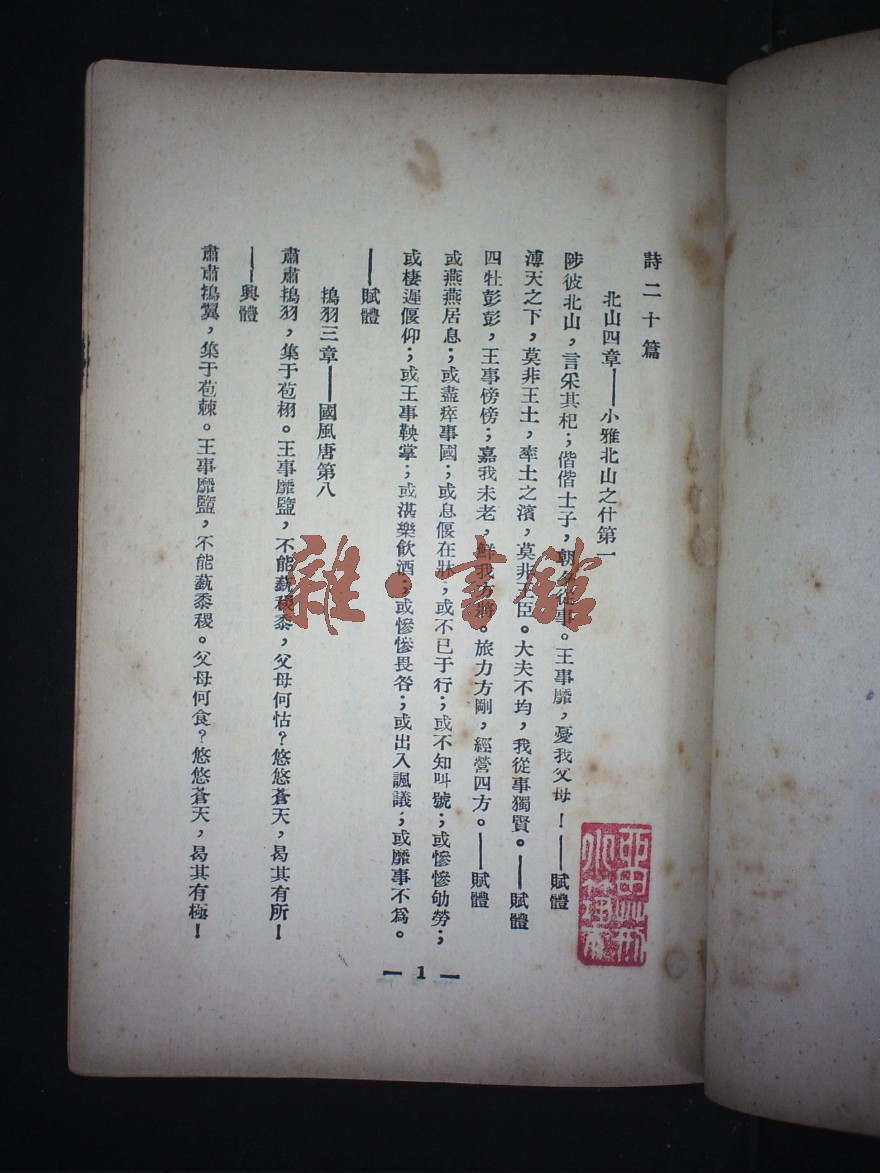 詩二十篇
北山四章——小雅北山之什第一
陟彼北山，言采其杞；偕偕士子，朝夕從事。王事靡，憂我父母！——賦體
溥天之下，莫非王土，率土之濱，莫非王臣。大夫不均，我從事獨賢。——賦體
四牡彭彭，王事傍傍；嘉我未老，鮮我方將。旅力方剛，經營四方。——賦體
或燕燕居息；或盡瘁事國；或息偃在牀；或不已于行；或不知叫號；或慘慘劬勞；
或棲遲偃仰；或王事鞅掌；或湛樂飲酒；或慘慘畏咎；或出入諷議；或靡事不爲。
——賦體
鴇羽三章——國風唐第八
肅肅鴇羽，集于苞栩。王事靡盬，不能蓺稷黍，父母何怙？悠悠蒼天，曷其有所！
——興體
肅肅鴇翼，集于苞棘。王事靡盬，不能蓺黍稷。父母何食？悠悠蒼天，曷其有極！
— 1 —
雜·書館